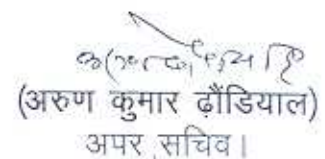 (अरुण कुमार ढ़ौंडियाल)
अपर सचिव।